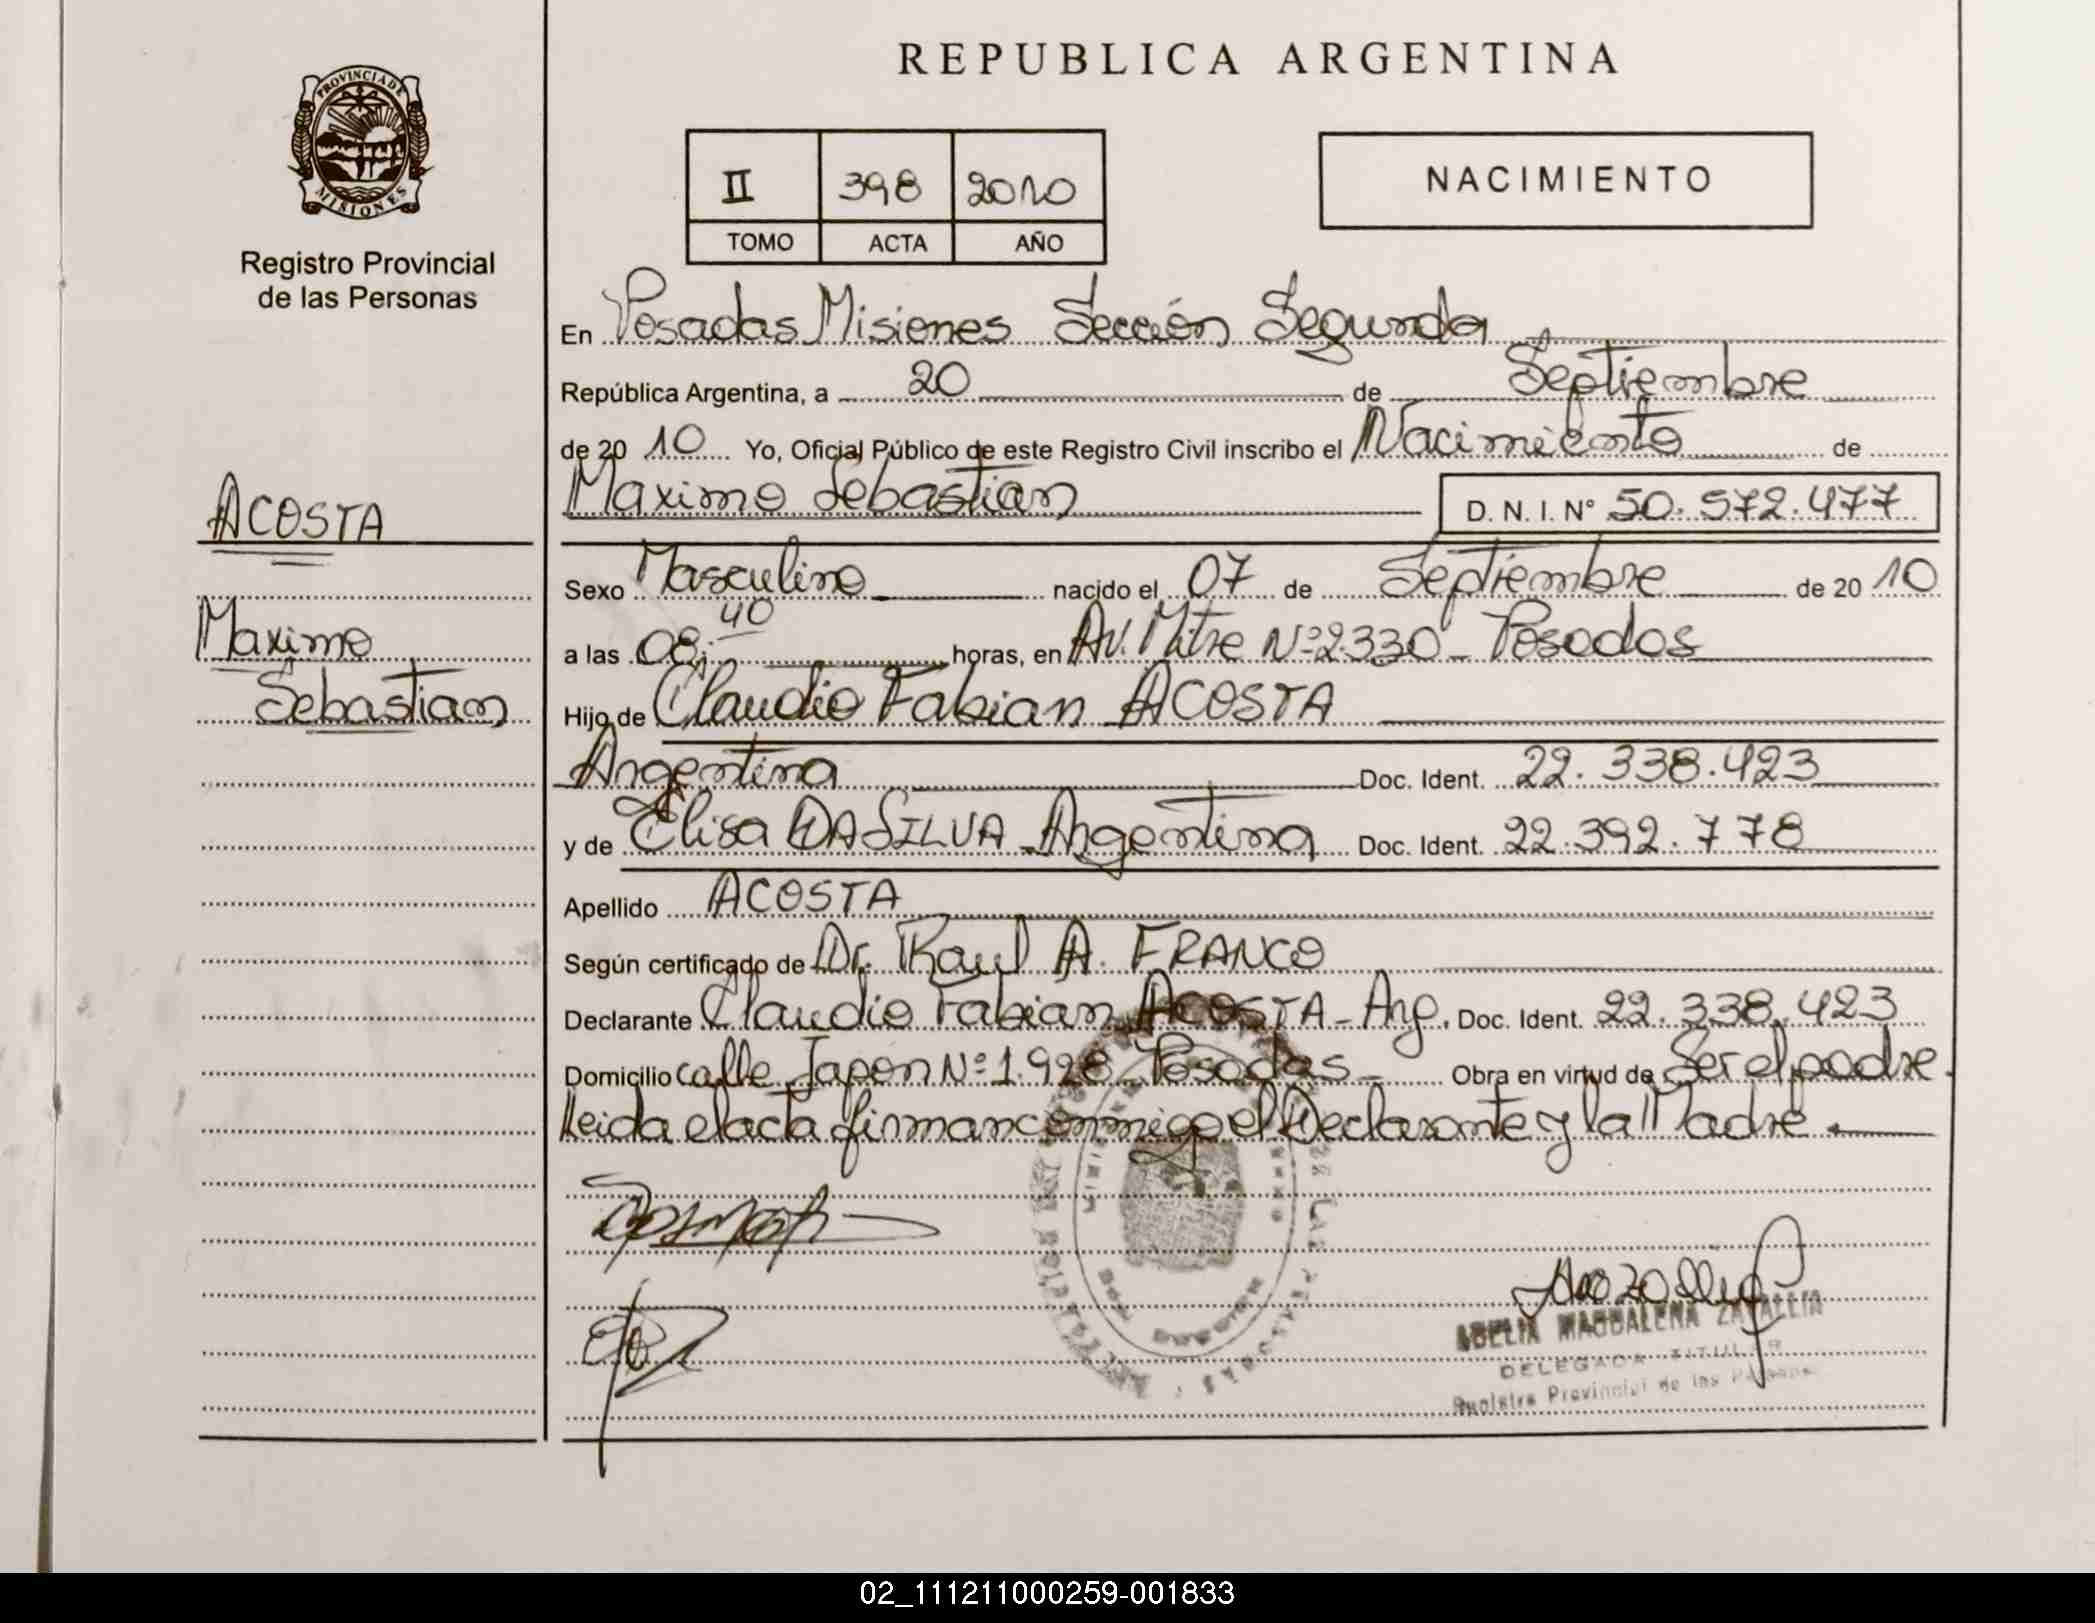 REPUBLICA ARGENTINA
PROVINCIA DE
MISIONES
Registro Provincial
de las Personas
II 398 2010
TOMO ACTA AÑO
NACIMIENTO
En Posadas Misiones Sección Segunda
República Argentina, a 20 de Septiembre
de 20 10 Yo, Oficial Público de este Registro Civil inscribo el Nacimiento de
Maximo Sebastian D. N. I. N° 50.572.477
ACOSTA
Maximo
Sebastian
Sexo Masculino nacido el 07 de Septiembre de 20 10
a las 08:40 horas, en Av. Mitre Nº 2.330 - Posadas
Hijo de Claudio Fabian ACOSTA
Argentina Doc. Ident. 22.338.423
y de Elisa DA SILVA - Argentina Doc. Ident. 22.392.778
Apellido ACOSTA
Según certificado de Dr. Raul A. FRANCO
Declarante Claudio Fabian ACOSTA - Arg. Doc. Ident. 22.338.423
Domicilio calle Japon Nº 1.928 - Posadas - Obra en virtud de Ser el padre.
Leida el acta firman conmigo el Declarante y la Madre.
ADELIA MAGDALENA ZARALLIA
DELEGADA TITULAR
Registro Provincial de las Personas
02_111211000259-001833